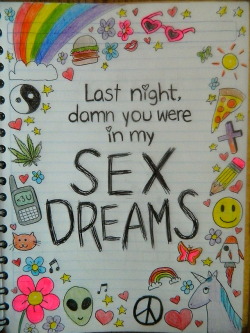 Last night,
damn you were
in my
SEX
DREAMS